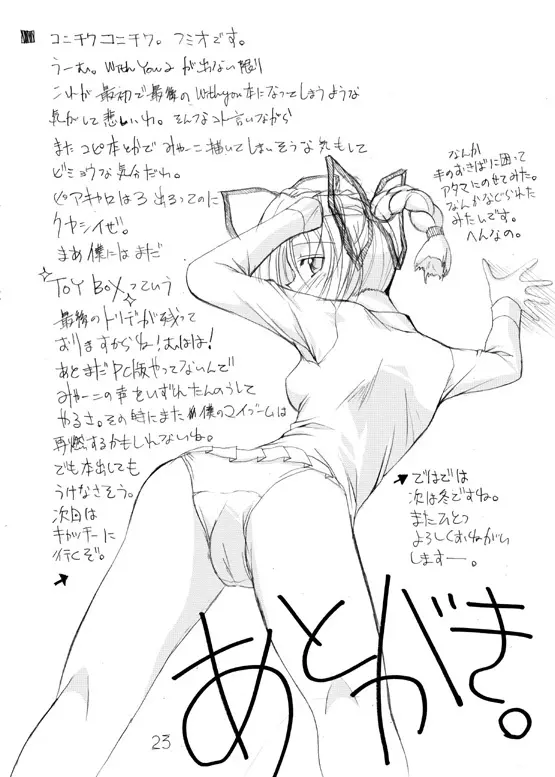 コニチワコニチワ。フミオです。
うーむ。With You 2 が出ない限り
コレが最初で最後のWith you本になってしまうような
気がして悲しいわ。そんなコト言いながら
またコピ本とかでみゃーこ描いてしまいそうな気もして
ビミョウな気分だわ。
ピアキャロは3出るってのに
クヤシイぜ。
まあ僕にはまだ
TOY BOXっていう
最後のトリデが残って
おりますからね!むはは!
あとまだPC版やってないんで
みゃーこの声をいずれたんのうして
やるさ。その時にまた僕のマイブームは
再燃するかもしれんないね。
でも本出しても
うけなさそう。
次回は
キャッチーに
行くぞ。
なんか
手のおきばに困って
アタマにのせてみた。
なんかなぐられた
みたいです。
へんなの。
ではでは
次は冬ですね。
またひとつ
よろしくおねがい
しますー。
あとがき。
23